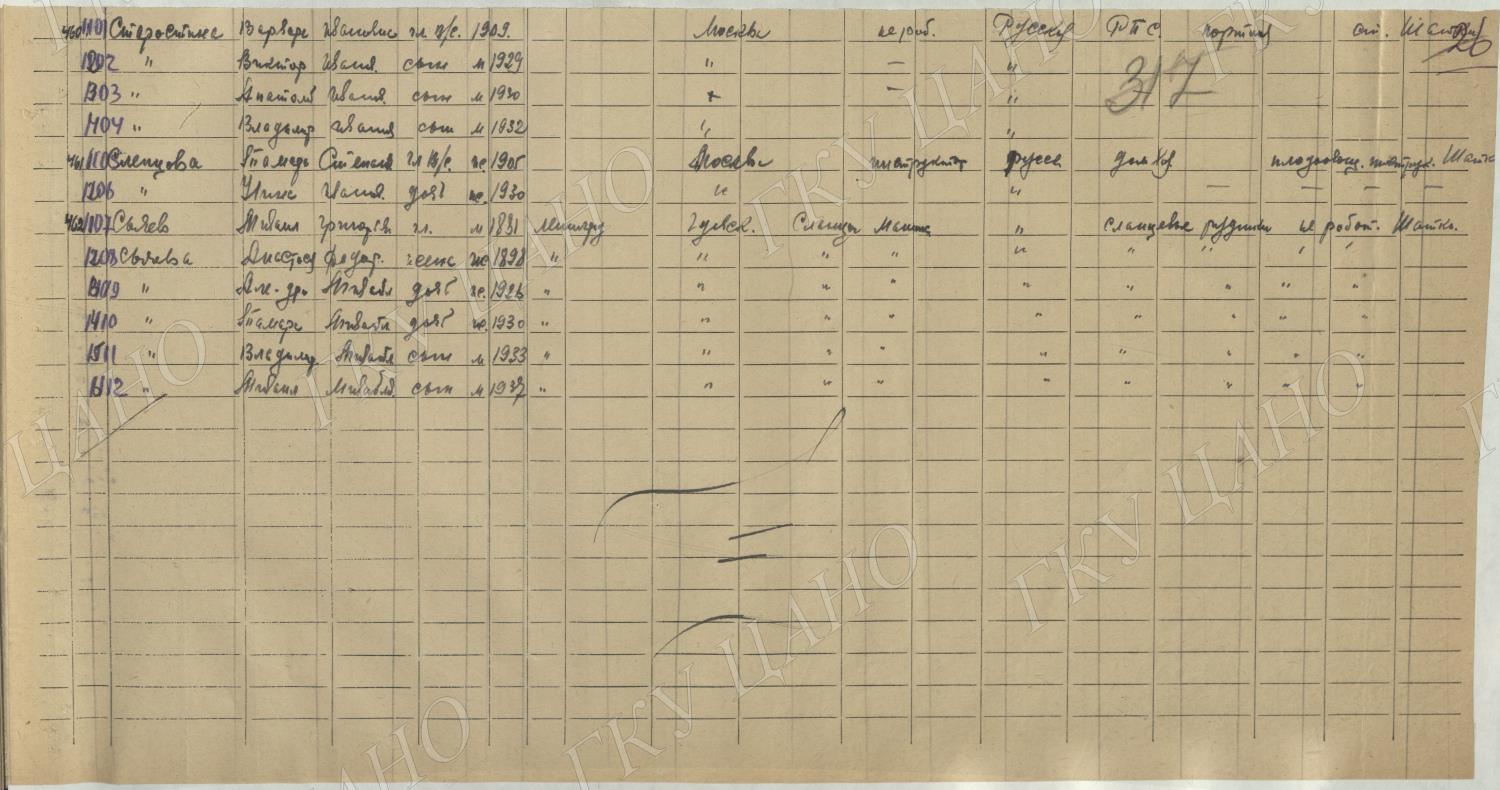 460 1101 Старостина Варвара Ивановна гл в/с. 1909. Москва не раб. Русская Р.П.С. портниха ст. Шатки 26
1102 " Виктор Иван. сын м 1929 " — "
317
1103 " Анатолий Иван. сын м 1930 — "
1104 " Владимир Иван сын м 1932 " "
461 Слепцова Тамара Степан гл в/с. ж. 1905 Москва инструктор русск плодоовощ. инструк. Шатк
1206 " Нина Иван. доч ж. 1930 " " — — — —
462 1107 Сычев Михаил Григорьев гл. м 1891 Ленинград Гдовск. Сланцы " сланцевые рудники не работ. Шатки.
1208 Сычева Анастас Федор. жена ж 1898 " " " " " " " " "
1109 " Але-др. Михайл доч ж. 1926 " " " " " " " " "
1410 " Тамара Михайл доч ж. 1930 " " " " " " " " "
1511 " Владимир. Михайл сын м 1933 " " " " " " " " "
1112 " Михаил Михайл. сын м 1937 " " " " " " " " "
ГКУ ЦАНО